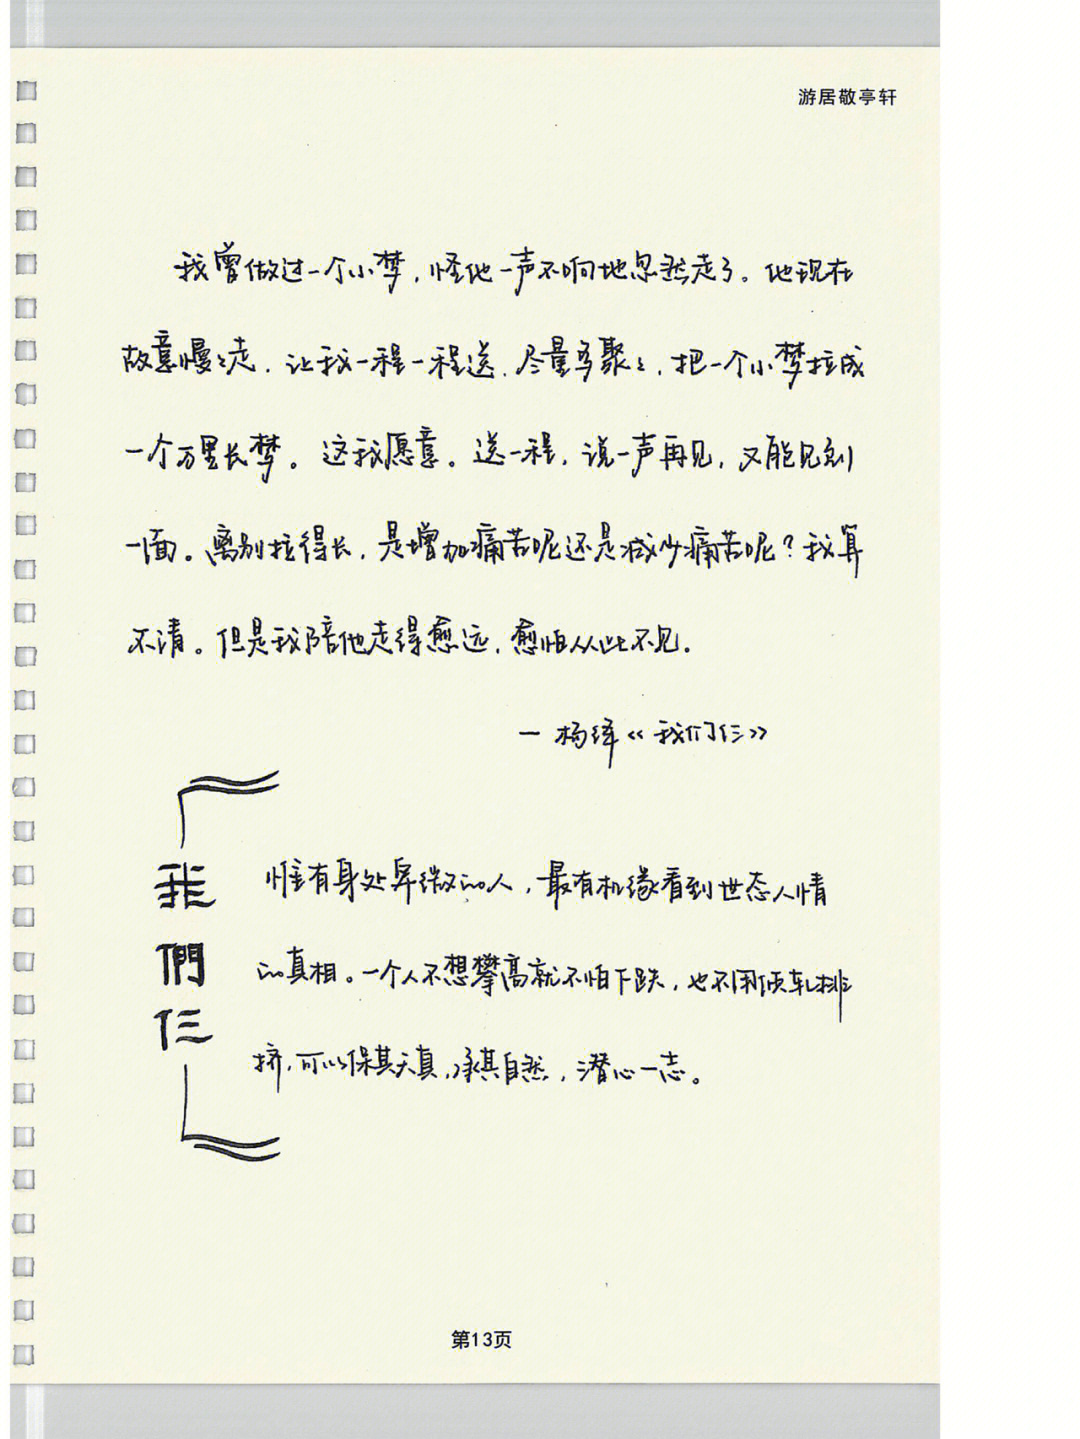 游居敬亭轩
我曾做过一个小梦，怪他一声不响地忽然走了。他现在
故意慢々走，让我一程一程送，尽量多聚々，把一个小梦拉成
一个万里长梦。这我愿意。送一程，说一声再见，又能见到
一面。离别拉得长，是增加痛苦呢还是减少痛苦呢？我算
不清。但是我陪他走得愈远，愈怕从此不见。
一 杨绛《我们仨》
我們仨
惟有身处卑微的人，最有机缘看到世态人情
的真相。一个人不想攀高就不怕下跌，也不用倾轧排
挤，可以保其天真，承其自然，潜心一志。
第13页